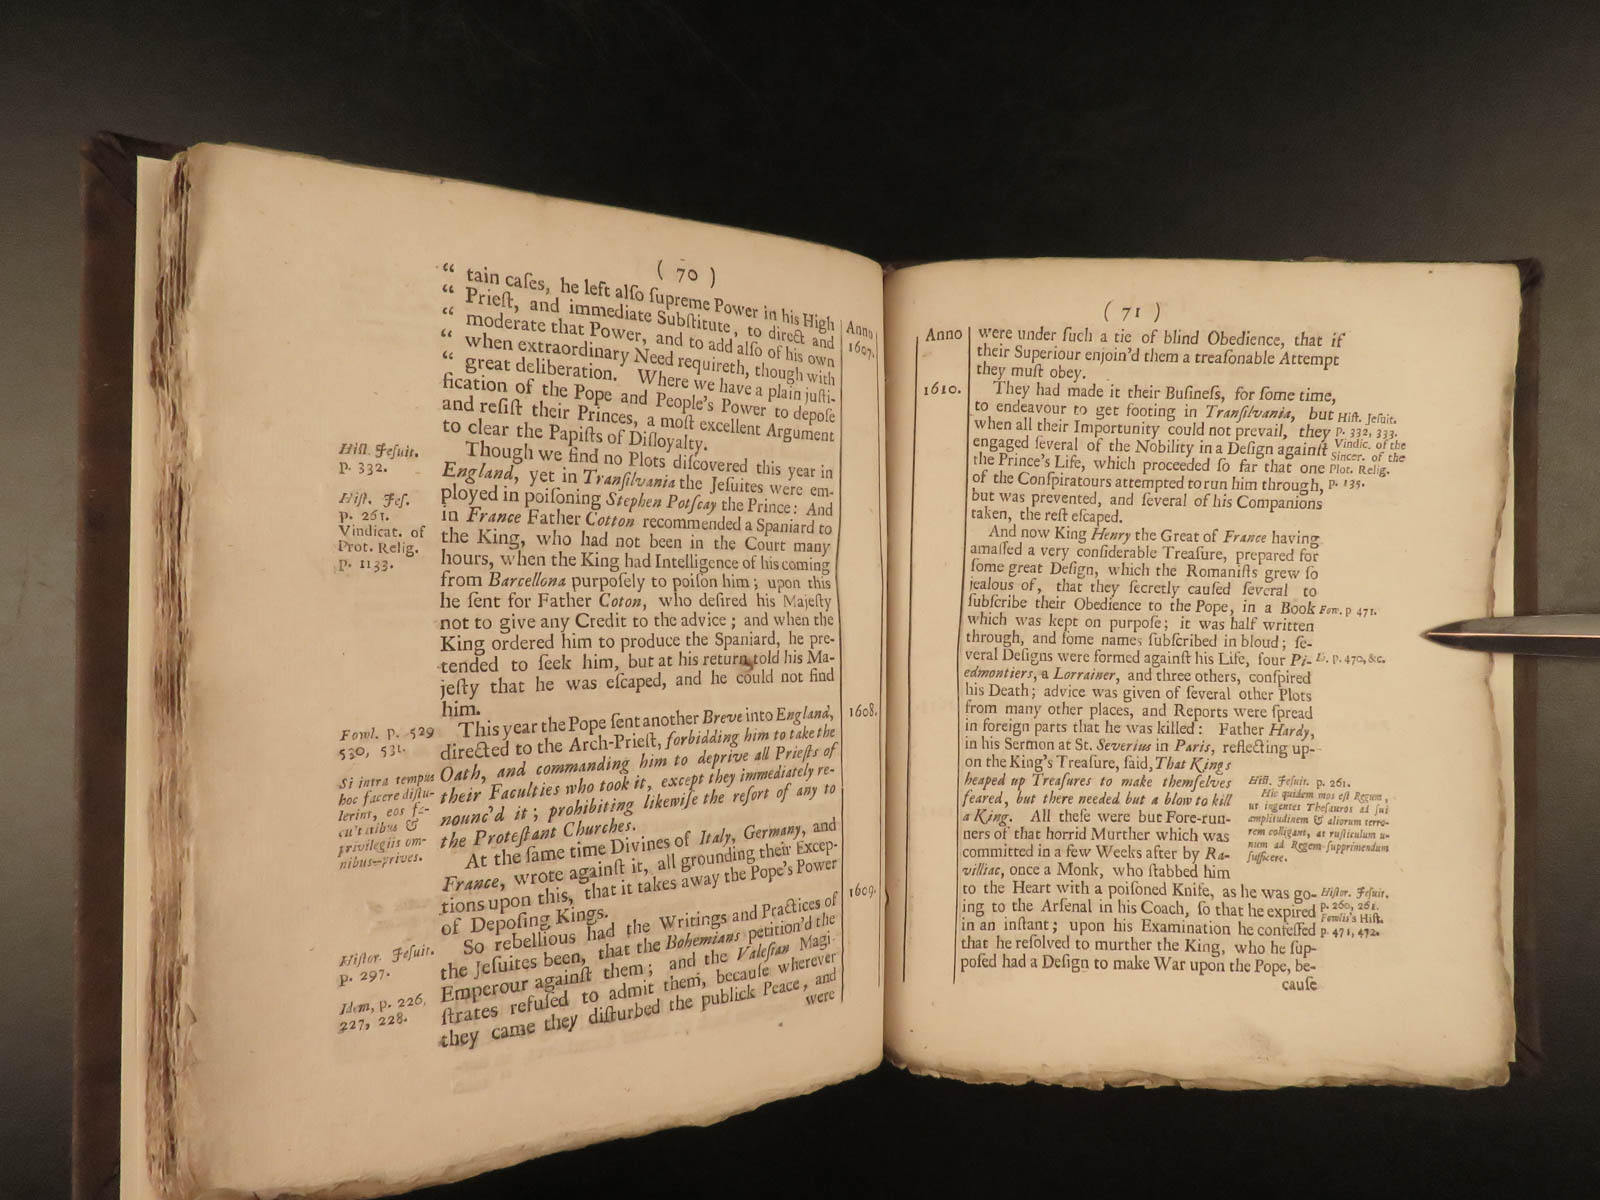 ( 70 )
“ tain caſes, he left alſo ſupreme Power in his High
“ Prieſt, and immediate Subſtitute, to direct and
“ moderate that Power, and to add alſo of his own
“ when extraordinary Need requireth, though with
“ great deliberation. Where we have a plain juſti-
fication of the Pope and People's Power to depoſe
and reſiſt their Princes, a moſt excellent Argument
to clear the Papiſts of Diſloyalty.
Though we find no Plots diſcovered this year in
England, yet in Tranſilvania the Jeſuites were em-
ployed in poiſoning Stephen Potſcay the Prince: And
in France Father Cotton recommended a Spaniard to
the King, who had not been in the Court many
hours, when the King had Intelligence of his coming
from Barcellona purpoſely to poiſon him; upon this
he ſent for Father Coton, who deſired his Majeſty
not to give any Credit to the advice; and when the
King ordered him to produce the Spaniard, he pre-
tended to ſeek him, but at his return told his Ma-
jeſty that he was eſcaped, and he could not find
him.
This year the Pope ſent another Breve into England,
directed to the Arch-Prieſt, forbidding him to take the
Oath, and commanding him to deprive all Prieſts of
their Faculties who took it, except they immediately re-
nounc'd it; prohibiting likewiſe the reſort of any to
the Proteſtant Churches.
At the ſame time Divines of Italy, Germany, and
France, wrote againſt it, all grounding their Excep-
tions upon this, that it takes away the Pope's Power
of Depoſing Kings.
So rebellious had the Writings and Practices of
the Jeſuites been, that the Bohemians petition'd the
Emperour againſt them; and the Valeſian Magi-
ſtrates refuſed to admit them, becauſe wherever
they came they diſturbed the publick Peace, and
were
Anno
1607.
1608.
1609.
Hiſt. Jeſuit.
p. 332.
Hiſt. Jeſ.
p. 261.
Vindicat. of
Prot. Relig.
p. 1133.
Fowl. p. 529
530, 531.
Si intra tempus
hoc facere diſtu-
lerint, eos fa-
cultatibus &
privilegiis om-
nibus prives.
Hiſtor. Jeſuit.
p. 297.
Idem, p. 226,
227, 228.
( 71 )
Anno
1610.
were under ſuch a tie of blind Obedience, that if
their Superiour enjoin'd them a treaſonable Attempt
they muſt obey.
They had made it their Buſineſs, for ſome time,
to endeavour to get footing in Tranſilvania, but
when all their Importunity could not prevail, they
engaged ſeveral of the Nobility in a Deſign againſt
the Prince's Life, which proceeded ſo far that one
of the Conſpiratours attempted to run him through,
but was prevented, and ſeveral of his Companions
taken, the reſt eſcaped.
And now King Henry the Great of France having
amaſſed a very conſiderable Treaſure, prepared for
ſome great Deſign, which the Romaniſts grew ſo
jealous of, that they ſecretly cauſed ſeveral to
ſubſcribe their Obedience to the Pope, in a Book
which was kept on purpoſe; it was half written
through, and ſome names ſubſcribed in bloud; ſe-
veral Deſigns were formed againſt his Life, four Pi-
edmontiers, a Lorrainer, and three others, conſpired
his Death; advice was given of ſeveral other Plots
from many other places, and Reports were ſpread
in foreign parts that he was killed: Father Hardy,
in his Sermon at St. Severius in Paris, reflecting up-
on the King's Treaſure, ſaid, That Kings
heaped up Treaſures to make themſelves
feared, but there needed but a blow to kill
a King. All theſe were but Fore-run-
ners of that horrid Murther which was
committed in a few Weeks after by Ra-
villiac, once a Monk, who ſtabbed him
to the Heart with a poiſoned Knife, as he was go-
ing to the Arſenal in his Coach, ſo that he expired
in an inſtant; upon his Examination he confeſſed
that he reſolved to murther the King, who he ſup-
poſed had a Deſign to make War upon the Pope, be-
cauſe
Hiſt. Jeſuit.
p. 332, 333.
Vindic. of the
Sincer. of the
Prot. Relig.
p. 135.
Fow. p 471.
p. 470, &c.
Hiſt. Jeſuit. p. 261.
Hic quidem mos eſt Regum,
ut ingentes Theſauros ad ſui
amplitudinem & aliorum terro-
rem colligant, at ruſticulum u-
num ad Regem ſupprimendum
ſufficere.
Hiſtor. Jeſuit.
p. 260, 261.
Fowlis's Hiſt.
p. 471, 472.